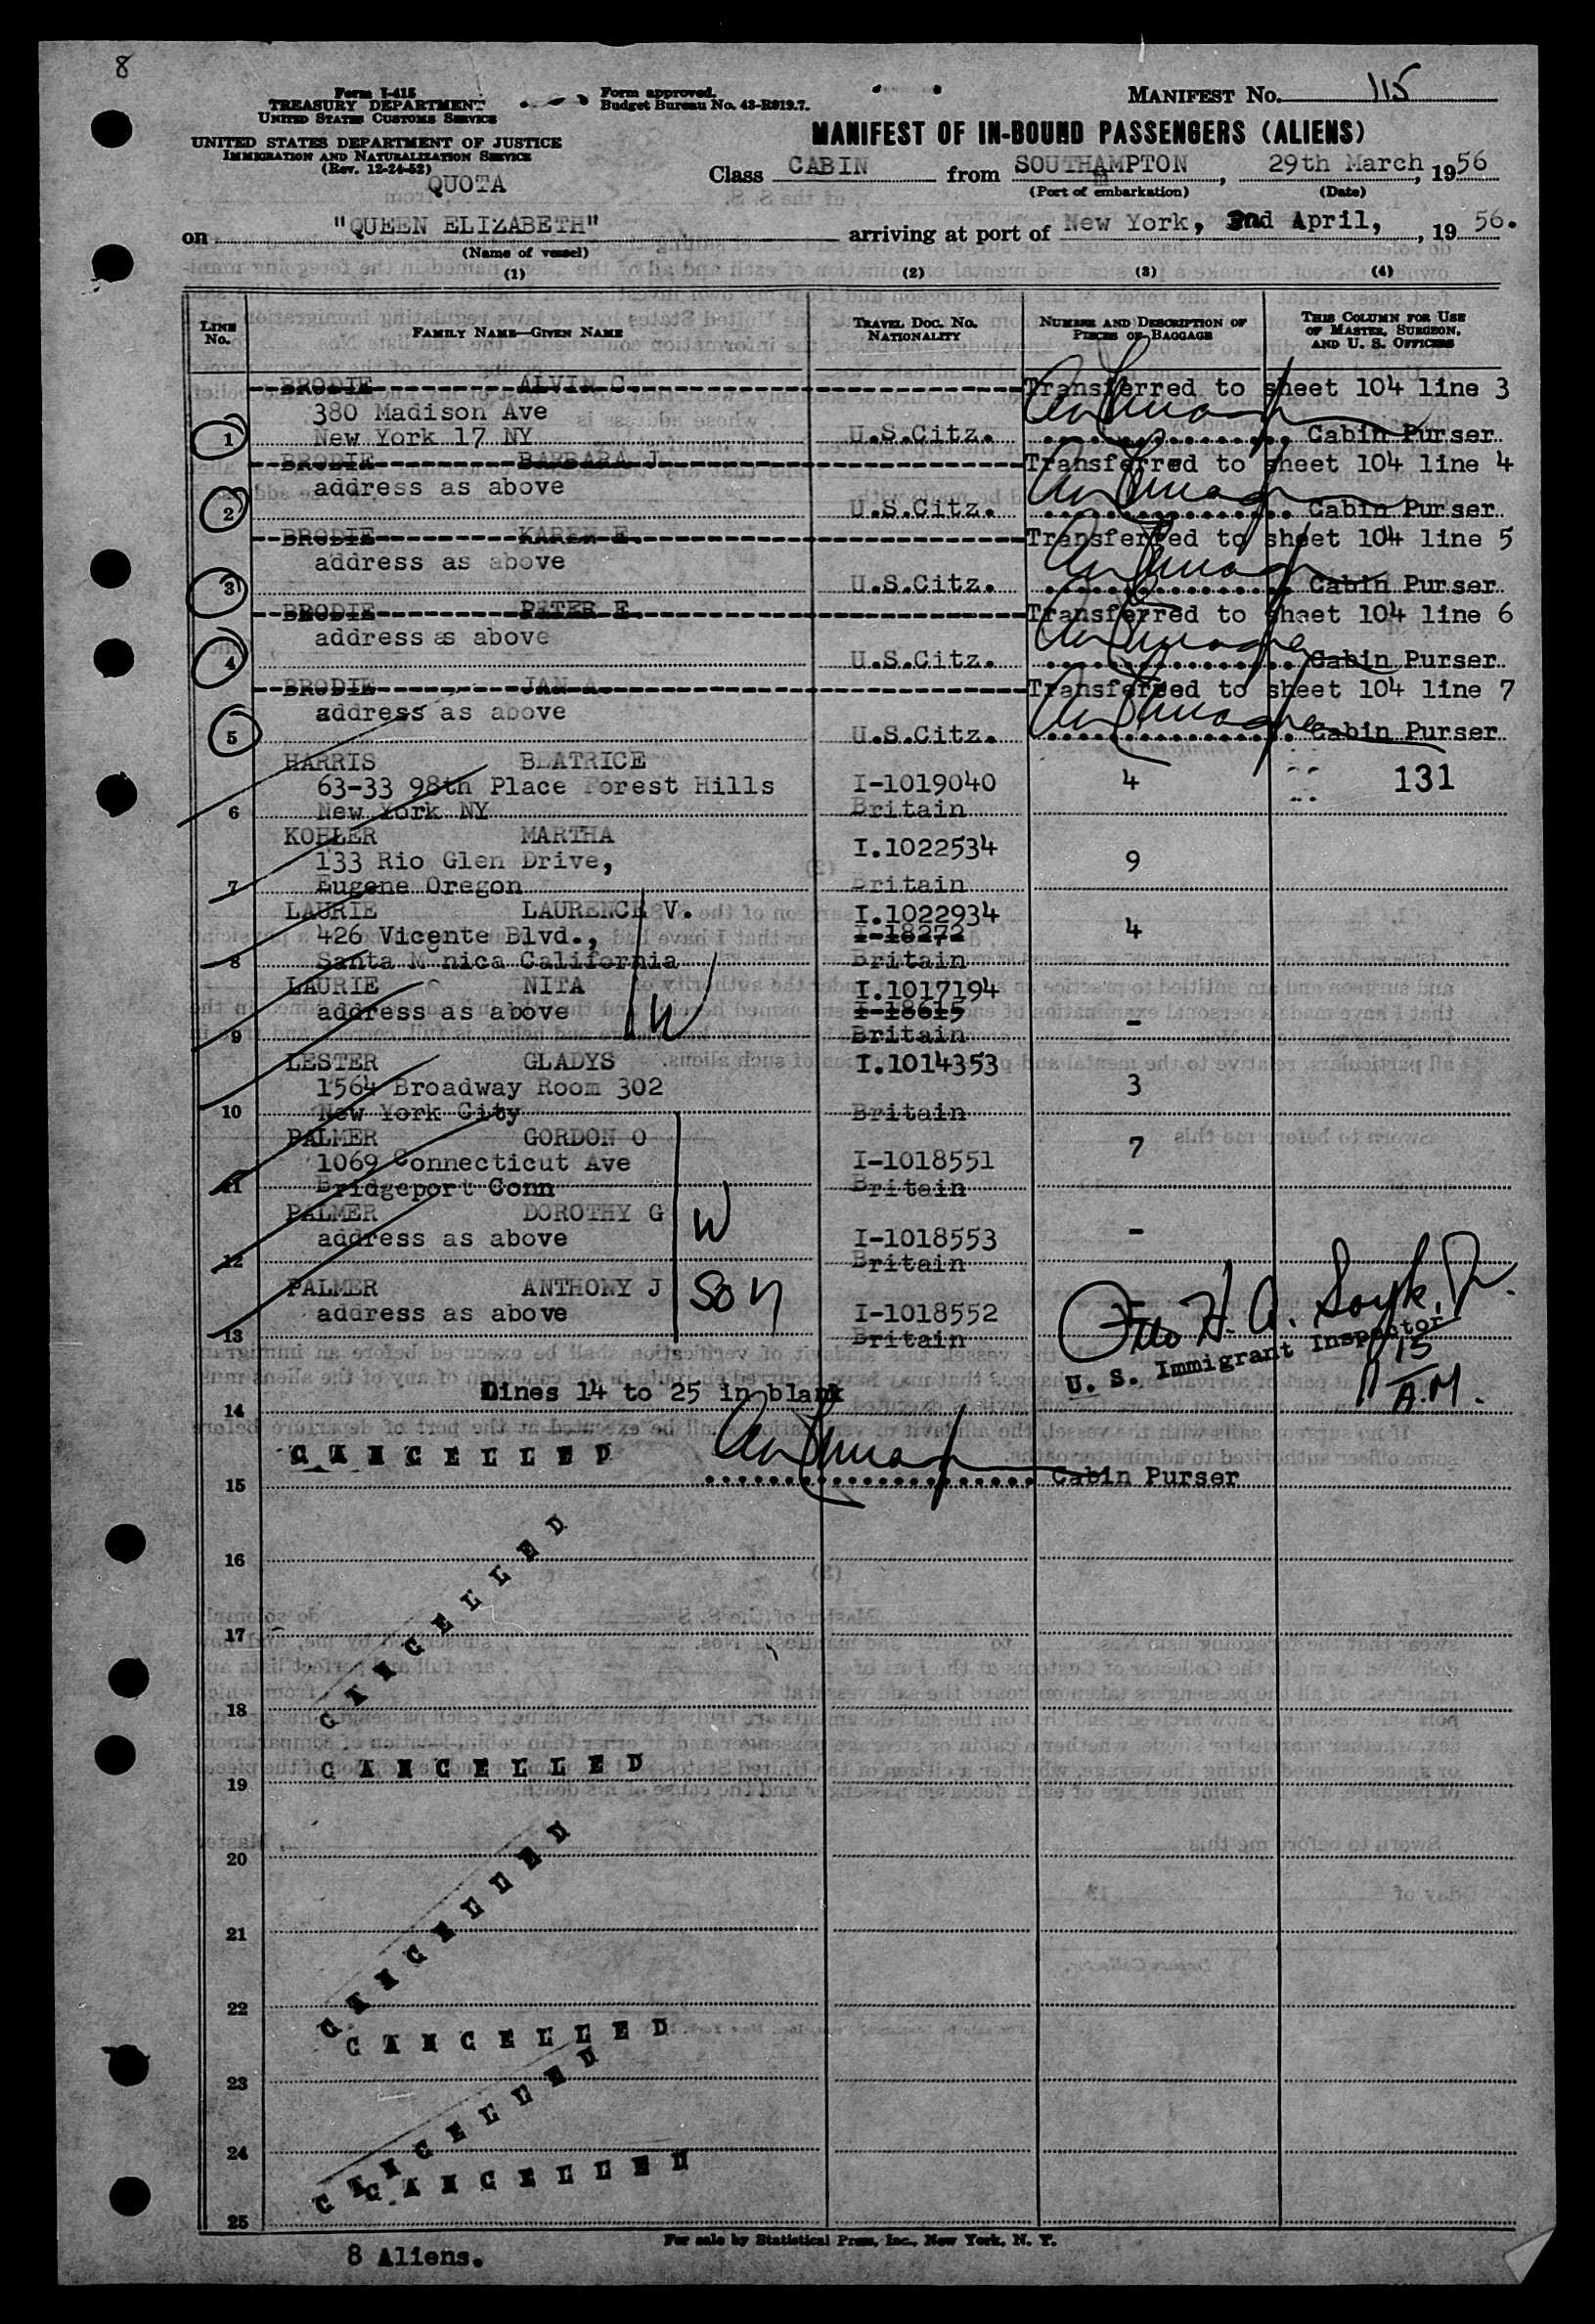 8
Form I-415
TREASURY DEPARTMENT
UNITED STATES CUSTOMS SERVICE
UNITED STATES DEPARTMENT OF JUSTICE
IMMIGRATION AND NATURALIZATION SERVICE
(Rev. 12-24-52)
QUOTA
Form approved.
Budget Bureau No. 43-R019.7.
MANIFEST No. 115
MANIFEST OF IN-BOUND PASSENGERS (ALIENS)
Class CABIN from SOUTHAMPTON, 29th March, 1956
(Port of embarkation) (Date)
on "QUEEN ELIZABETH" arriving at port of New York, 2nd April, 1956.
(Name of vessel)
(1) (2) (3) (4)
LINE No. FAMILY NAME—GIVEN NAME TRAVEL DOC. No. NATIONALITY NUMBER AND DESCRIPTION OF PIECES OF BAGGAGE THIS COLUMN FOR USE OF MASTER, SURGEON, AND U. S. OFFICERS
BRODIE ALVIN C Transferred to sheet 104 line 3
380 Madison Ave
1 New York 17 NY U.S.Citz. Cabin Purser
BRODIE BARBARA J Transferred to sheet 104 line 4
address as above
2 U.S.Citz. Cabin Purser
BRODIE KAREN E. Transferred to sheet 104 line 5
address as above
3 U.S.Citz. Cabin Purser
BRODIE PETER E. Transferred to sheet 104 line 6
address as above
4 U.S.Citz. Cabin Purser
BRODIE JAN A. Transferred to sheet 104 line 7
address as above
5 U.S.Citz. Cabin Purser
HARRIS BEATRICE
63-33 98th Place Forest Hills I-1019040 4 131
6 New York NY Britain
KOHLER MARTHA I.1022534
133 Rio Glen Drive, 9
7 Eugene Oregon Britain
LAURIE LAURENCE V. I.1022934
426 Vicente Blvd., I-18272 4
8 Santa Monica California Britain
LAURIE NITA I.1017194
address as above W I-18615 -
9 Britain
LESTER GLADYS I.1014353
1564 Broadway Room 302 3
10 New York City Britain
PALMER GORDON O 7
1069 Connecticut Ave I-1018551
11 Bridgeport Conn Britain
PALMER DOROTHY G W -
address as above I-1018553
12 Britain
PALMER ANTHONY J son
address as above I-1018552 -
13 Britain
Otto H. A. Soyk, Jr.
U. S. Immigrant Inspector
11 15 A.M.
Lines 14 to 25 in blank
14
CANCELLED
15 Cabin Purser
16
CANCELLED
17
18
CANCELLED
19
20
CANCELLED
21
22
CANCELLED
23
CANCELLED
24
CANCELLED
25
For sale by Statistical Press, Inc., New York, N. Y.
8 Aliens.